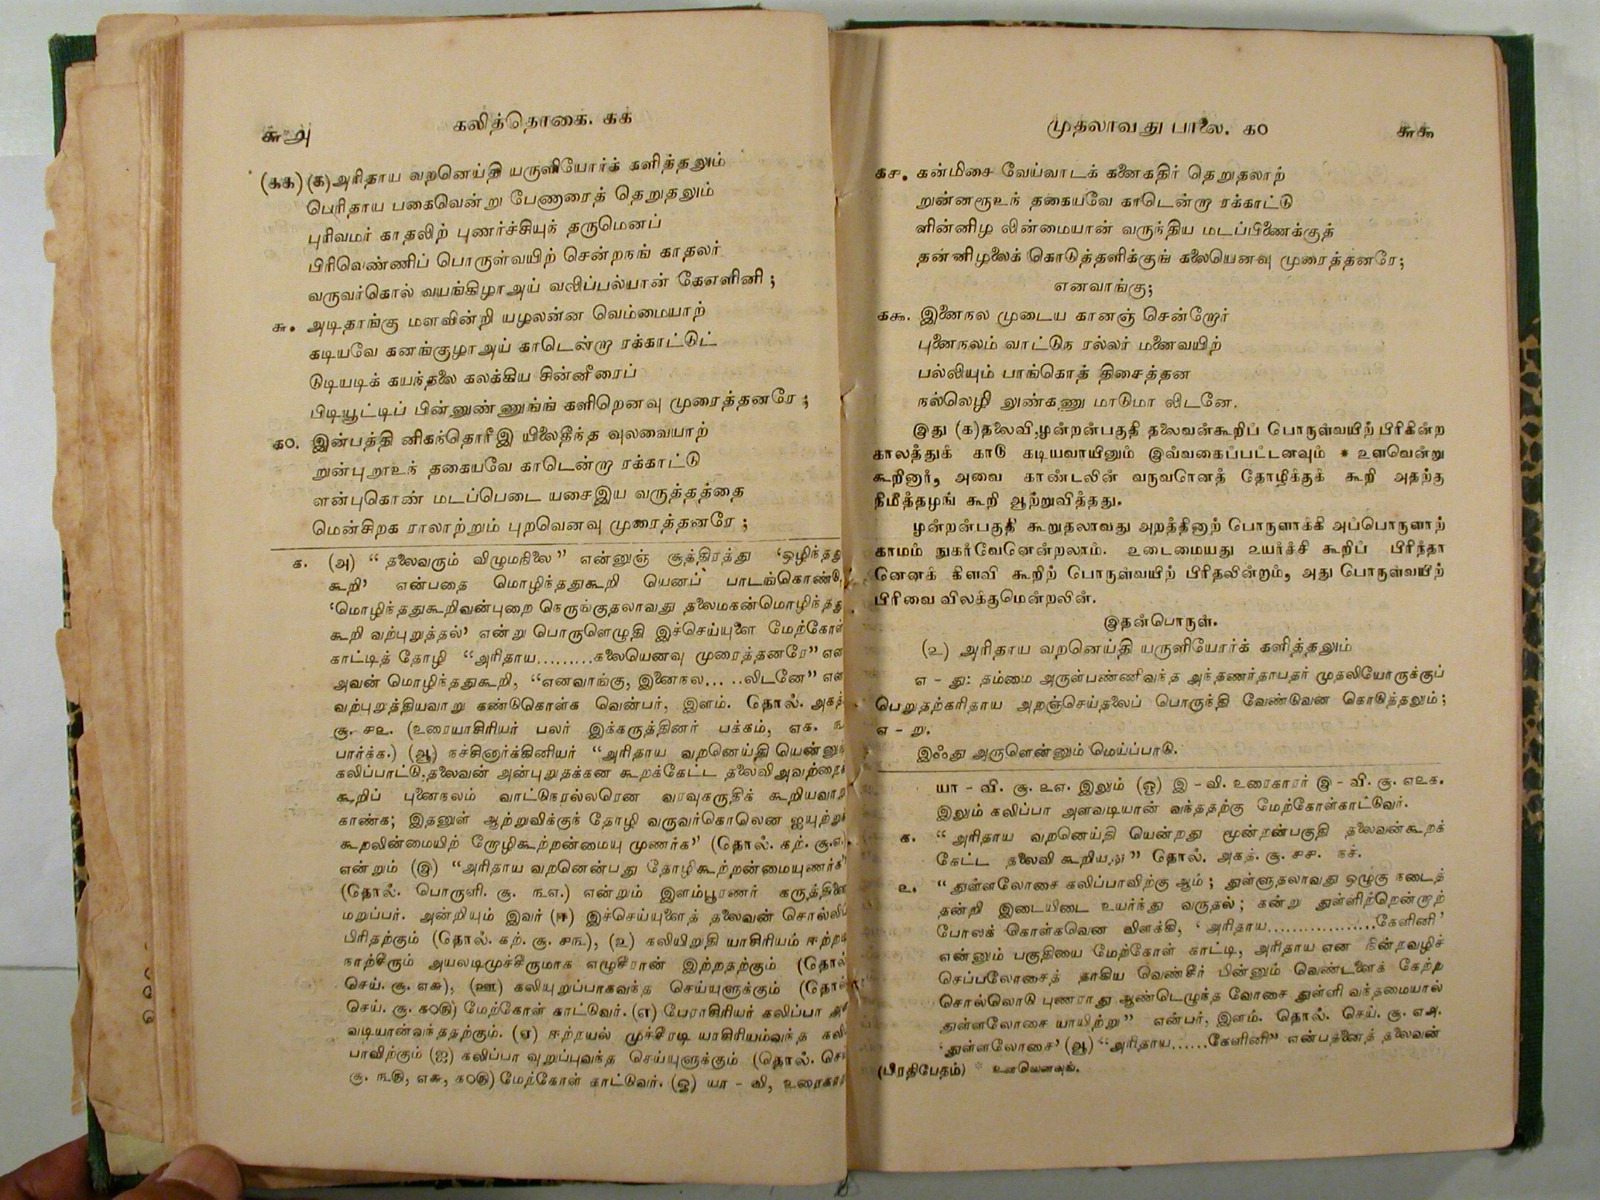 கலித்தொகை. கக
(கக) (க)அரிதாய வறனெய்தி யருளியோர்க் களித்தலும்
பெரிதாய பகைவென்று பேணாரைத் தெறுதலும்
புரிவமர் காதலிற் புணர்ச்சியுந் தருமெனப்
பிரிவெண்ணிப் பொருள்வயிற் சென்றநங் காதலர்
வருவர்கொல் வயங்கிழாஅய் வலிப்பல்யான் கேஎளினி ;
௬. அடிதாங்கு மளவின்றி யழலன்ன வெம்மையாற்
கடியவே கனங்குழாஅய் காடென்றா ரக்காட்டுட்
டுடியடிக் கயந்தலை கலக்கிய சின்னீரைப்
பிடியூட்டிப் பின்னுண்ணுங் களிறெனவு முரைத்தனரே ;
க௦. இன்பத்தி னிகந்தொரீஇ யிலைதீந்த வுலவையாற்
றுன்புறூஉந் தகையவே காடென்றா ரக்காட்டு
ளன்புகொண் மடப்பெடை யசைஇய வருத்தத்தை
மென்சிறக ராலாற்றும் புறவெனவு முரைத்தனரே ;
க. (அ) “ தலைவரும் விழுமநிலை” என்னுஞ் சூத்திரத்து ‘ஒழிந்தது
கூறி’ என்பதை மொழிந்ததுகூறி யெனப் பாடங்கொண்டு
‘மொழிந்ததுகூறிவன்புறை நெருங்குதலாவது தலைமகன்மொழிந்தது
கூறி வற்புறுத்தல்’ என்று பொருளெழுதி இச்செய்யுளை மேற்கோள்
காட்டித் தோழி “அரிதாய.........கலையெனவு முரைத்தனரே” என
அவன் மொழிந்ததுகூறி, “எனவாங்கு, இனைநல... ..லிடனே” என
வற்புறுத்தியவாறு கண்டுகொள்க வென்பர், இளம். தொல். அகத்
சூ. ௪௨. (உரையாசிரியர் பலர் இக்கருத்தினர் பக்கம், எக. ந
பார்க்க.) (ஆ) நச்சினார்க்கினியர் “அரிதாய வறனெய்தி யென்னுங்
கலிப்பாட்டு, தலைவன் அன்புறுதக்கன கூறக்கேட்ட தலைவி அவற்றைக்
கூறிப் புனைநலம் வாட்டுநரல்லரென வரவுகருதிக் கூறியவாறு
காண்க; இதனுள் ஆற்றுவிக்குந் தோழி வருவர்கொலென ஐயுற்றுக்
கூறலின்மையிற் றோழிகூற்றன்மையு முணர்க’ (தொல். கற். சூ.
என்றும் (இ) “அரிதாய வறனென்பது தோழிகூற்றன்மையுணர்க”
(தொல். பொருளி. சூ. ௩௭.) என்றும் இளம்பூரணர் கருத்தினை
மறுப்பர். அன்றியும் இவர் (ஈ) இச்செய்யுளைத் தலைவன் சொல்லிப்
பிரிதற்கும் (தொல். கற். சூ. ௪௩.), (உ) கலியிறுதி யாசிரியம் ஈற்றய
நாற்சீரும் அயலடிமுச்சீருமாக எழுசீரான் இற்றதற்கும் (தொல்
செய். சூ. எ௬), (ஊ) கலியுறுப்பாகவந்த செய்யுளுக்கும் (தொல்
செய். சூ. க௦௫) மேற்கோள் காட்டுவர். (எ) பேராசிரியர் கலிப்பா அள
வடியான்வந்ததற்கும். (ஏ) ஈற்றயல் முச்சீரடி யாசிரியம்வந்த கலி
பாவிற்கும் (ஐ) கலிப்பா வுறுப்புவந்த செய்யுளுக்கும் (தொல். செய்
சூ. ௩௫, எ௬, க௦௫) மேற்கோள் காட்டுவர். (ஒ) யா - வி, உரைகார
முதலாவது பாலை. க௦
க௪. கன்மிசை வேய்வாடக் கனைகதிர் தெறுதலாற்
றுன்னரூஉந் தகையவே காடென்றா ரக்காட்டு
ளின்னிழ லின்மையான் வருந்திய மடப்பிணைக்குத்
தன்னிழலைக் கொடுத்தளிக்குங் கலையெனவு முரைத்தனரே;
எனவாங்கு;
க௯. இனைநல முடைய கானஞ் சென்றோர்
புனைநலம் வாட்டுந ரல்லர் மனைவயிற்
பல்லியும் பாங்கொத் திசைத்தன
நல்லெழி லுண்கணு மாடுமா லிடனே.
இது (க)தலைவி, மூன்றன்பகுதி தலைவன்கூறிப் பொருள்வயிற் பிரிகின்ற
காலத்துக் காடு கடியவாயினும் இவ்வகைப்பட்டனவும் * உளவென்று
கூறினார், அவை காண்டலின் வருவரெனத் தோழிக்குக் கூறி அதற்கு
நிமித்தமுங் கூறி ஆற்றுவித்தது.
மூன்றன்பகுதி கூறுதலாவது அறத்தினாற் பொருளாக்கி அப்பொருளாற்
காமம் நுகர்வேனென்றலாம். உடைமையது உயர்ச்சி கூறிப் பிரிந்தா
னெனக் கிளவி கூறிற் பொருள்வயிற் பிரிதலின்றாம், அது பொருள்வயிற்
பிரிவை விலக்குமென்றலின்.
இதன்பொருள்.
(உ) அரிதாய வறனெய்தி யருளியோர்க் களித்தலும்
எ - து: தம்மை அருள்பண்ணிவந்த அந்தணர்தாபதர் முதலியோருக்குப்
பெறுதற்கரிதாய அறஞ்செய்தலைப் பொருந்தி வேண்டுவன கொடுத்தலும்;
எ - று.
இஃது அருளென்னும் மெய்ப்பாடு.
யா - வி. சூ. உஎ. இலும் (ஓ) இ - வி. உரைகாரர் இ - வி. சூ. எஉக.
இலும் கலிப்பா அளவடியான் வந்ததற்கு மேற்கோள்காட்டுவர்.
க. “ அரிதாய வறனெய்தி யென்றது மூன்றன்பகுதி தலைவன்கூறக்
கேட்ட தலைவி கூறியது” தொல். அகத். சூ. ௪௪. நச்.
உ. “ துள்ளலோசை கலிப்பாவிற்கு ஆம் ; துள்ளுதலாவது ஒழுகு நடைத்
தன்றி இடையிடை உயர்ந்து வருதல் ; கன்று துள்ளிற்றென்றாற்
போலக் கொள்கவென விளக்கி, ‘ அரிதாய..................கேளினி’
என்னும் பகுதியை மேற்கோள் காட்டி, அரிதாய என நின்றவழிச்
செப்பலோசைத் தாகிய வெண்சீர் பின்னும் வெண்டளைக் கேற்ற
சொல்லொடு புணராது ஆண்டெழுந்த வோசை துள்ளி வந்தமையால்
துள்ளலோசை யாயிற்று” என்பர், இளம். தொல். செய். சூ. எஅ.
‘துள்ளலோசை’ (ஆ) “அரிதாய......கேளினி” என்பதனைத் தலைவன்
(பிரதிபேதம்) * உளவெனவும்.